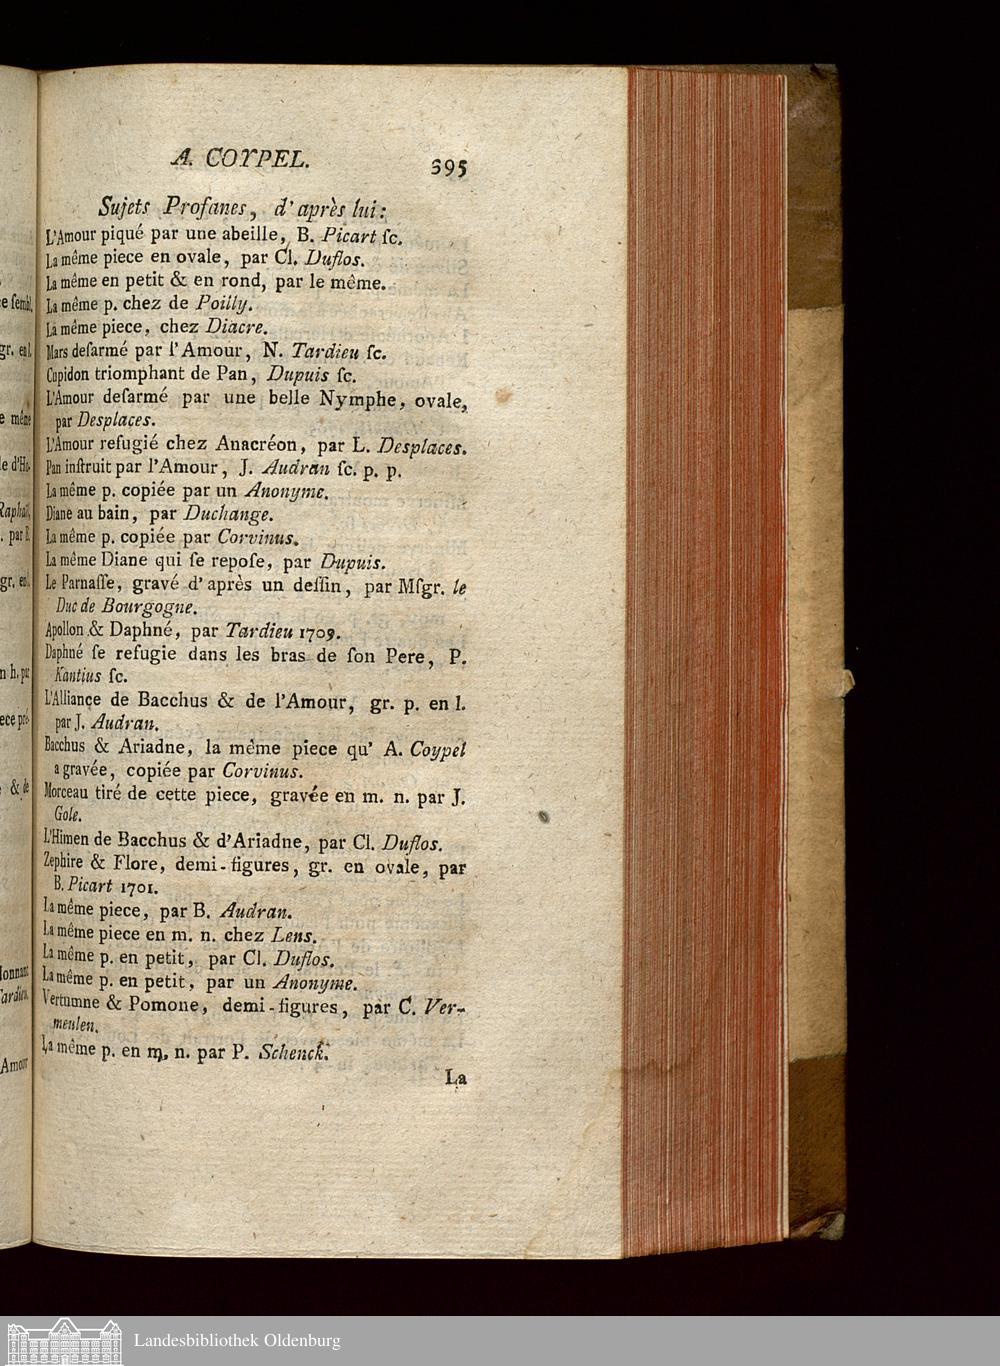 A. COYPEL.
395
Sujets Profanes, d'après lui:
L'Amour piqué par une abeille, B. Picart ſc.
La même piece en ovale, par Cl. Duflos.
La même en petit & en rond, par le même.
La même p. chez de Poilly.
La même piece, chez Diacre.
Mars deſarmé par l'Amour, N. Tardieu ſc.
Cupidon triomphant de Pan, Dupuis ſc.
L'Amour deſarmé par une belle Nymphe, ovale,
par Desplaces.
L'Amour refugié chez Anacréon, par L. Desplaces.
Pan inſtruit par l'Amour, J. Audran ſc. p. p.
La même p. copiée par un Anonyme.
Diane au bain, par Duchange.
La même p. copiée par Corvinus.
La même Diane qui ſe repoſe, par Dupuis.
Le Parnaſſe, gravé d'après un deſſin, par Mſgr. le
Duc de Bourgogne.
Apollon & Daphné, par Tardieu 1709.
Daphné ſe refugie dans les bras de ſon Pere, P.
Kantius ſc.
L'Alliance de Bacchus & de l'Amour, gr. p. en l.
par J. Audran.
Bacchus & Ariadne, la même piece qu' A. Coypel
a gravée, copiée par Corvinus.
Morceau tiré de cette piece, gravée en m. n. par J.
Gole.
L'Himen de Bacchus & d'Ariadne, par Cl. Duflos.
Zephire & Flore, demi-figures, gr. en ovale, par
B. Picart 1701.
La même piece, par B. Audran.
La même piece en m. n. chez Lens.
La même p. en petit, par Cl. Duflos.
La même p. en petit, par un Anonyme.
Vertumne & Pomone, demi-figures, par C. Ver-
meulen.
La même p. en m. n. par P. Schenck.
La
Landesbibliothek Oldenburg